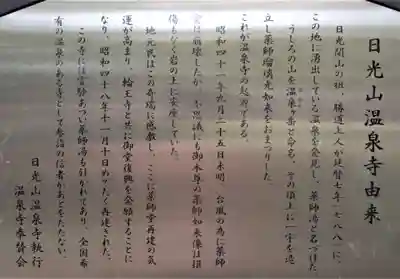 日光山温泉寺由来
日光開山の祖・勝道上人が延暦七年(七八八)に、
この地に湧出している温泉を発見し、薬師湯と名づけた
うしろの山を温泉ヶ岳と命名、その頂上に一宇を建
立し薬師瑠璃光如来をおまつりした。
これが温泉寺の起源である。
昭和四十一年九月二十五日未明、台風の為に薬師
堂は崩壊したが、不思議にも御本尊の薬師如来像は損
傷もなく岩の上に安座していた。
地元民はこの奇瑞に感歎し、ここに薬師堂再建の気
運が高まり、輪王寺と共に御堂復興を発願することに
なり、昭和四十八年十一月十日めでたく再建された。
この寺には霊験あつい薬師湯も引かれてあり、全国希
有の温泉のある寺として参詣の信者があとをたたない。
日光山温泉寺執行
温泉寺奉賛会